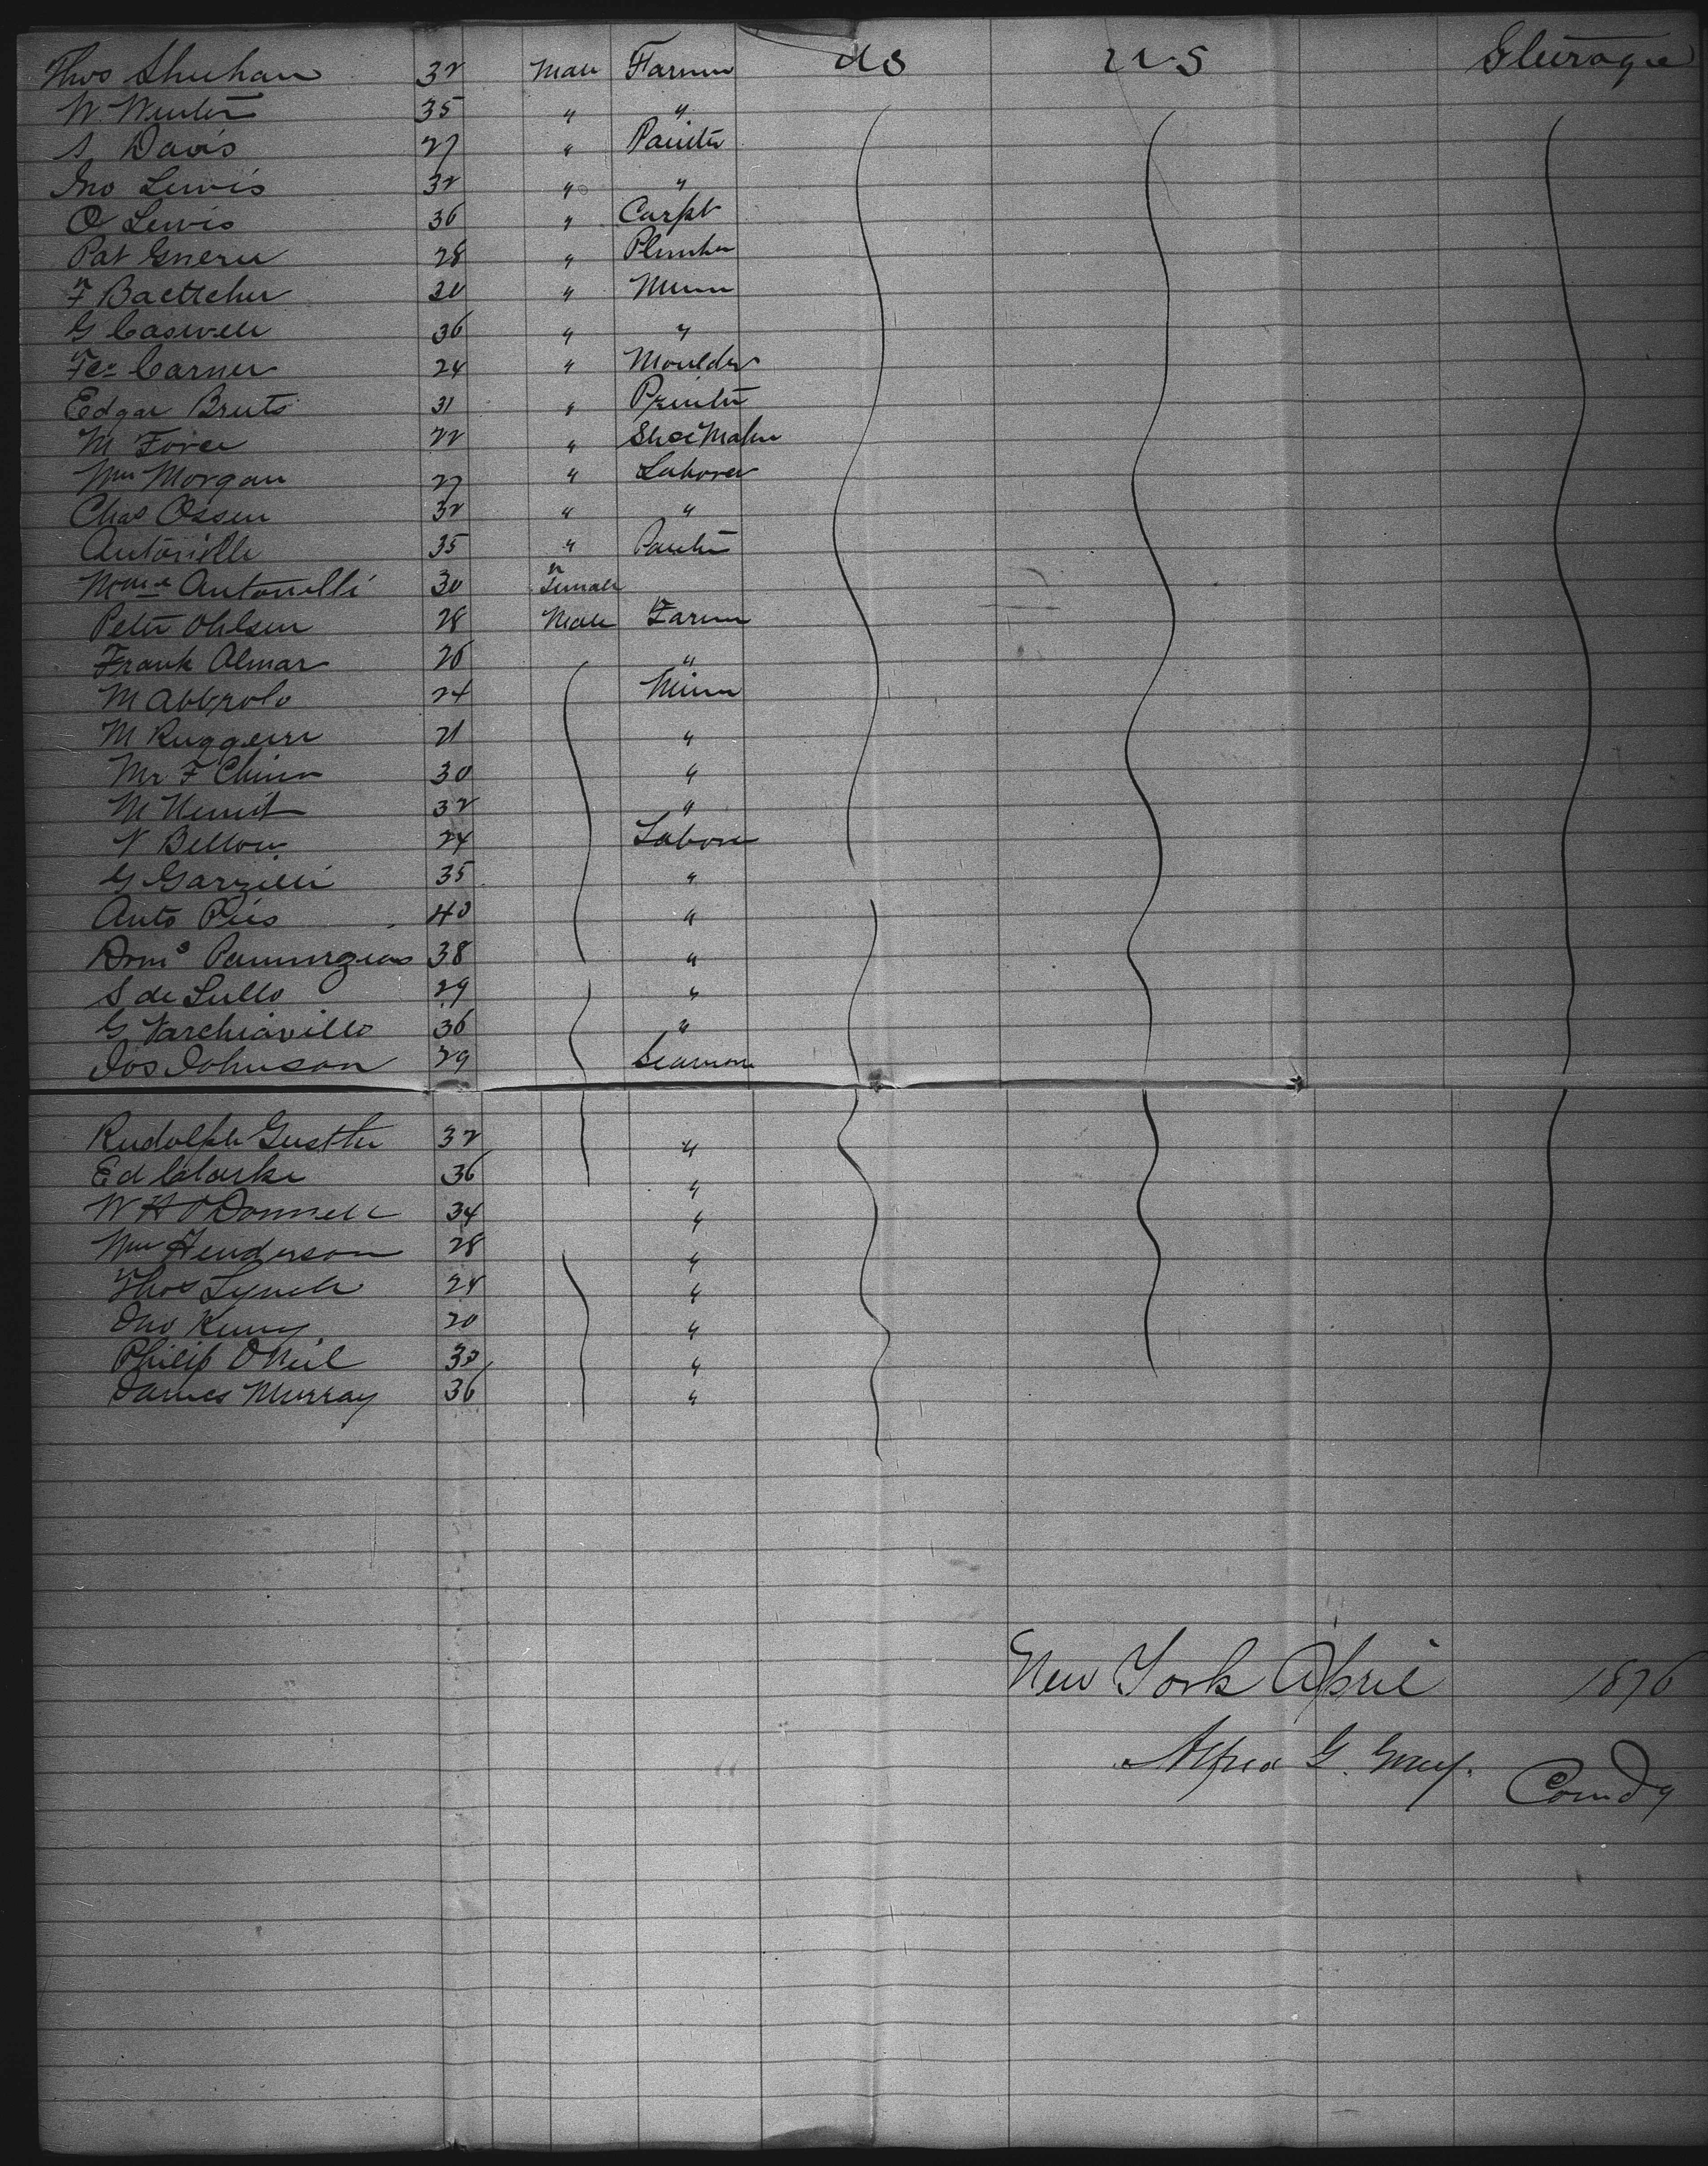 Thos Shuhan 32 Male Farmer US US Steerage
W. Winter 35 " "
S Davis 27 " Painter
Jno Lewis 32 " "
O Lewis 36 " Carpt
Pat 28 " Plumber
F Baettcher 30 " Miner
G Caswell 36 " "
Carner 24 " Moulder
Edgar Bruts 31 " Printer
M Forer 22 " Shoe Maker
Wm Morgan 27 " Laborer
Chas Ossen 32 " "
35 "
Mme Antonelli 30 Female
Peter Ohlsen 28 Male Farmer
Frank Almar 26 "
M Abbrolo 24 Miner
M Ruggeiri 21 "
Mr F Chinn 30 "
M 32 "
V Bellou 24 Labore
G Garzilli 35 "
Anto Pies 40 "
Domo 38 "
S de Lullo 29 "
G Varchiavillo 36 "
Jos Johnson 29 Seaman
Rudolph Gustter 32 "
Ed Clarke 36 "
W H O'Donnell 34 "
Wm Henderson 28 "
Thos Lynch 24 "
Jno Kenny 20 "
Philip O Neil 30 "
James Murray 36 "
New York April 1876
Alfred G. Gray. Comdg